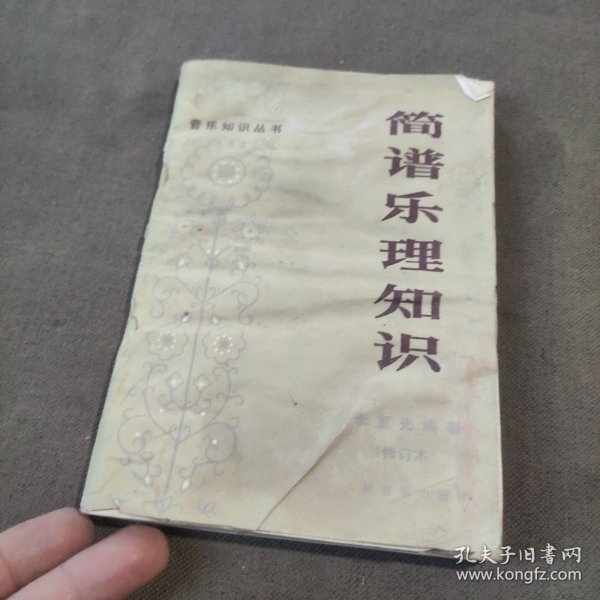 音乐知识丛书
简谱乐理知识
编著
修订本
孔夫子旧书网
www.kongfz.com